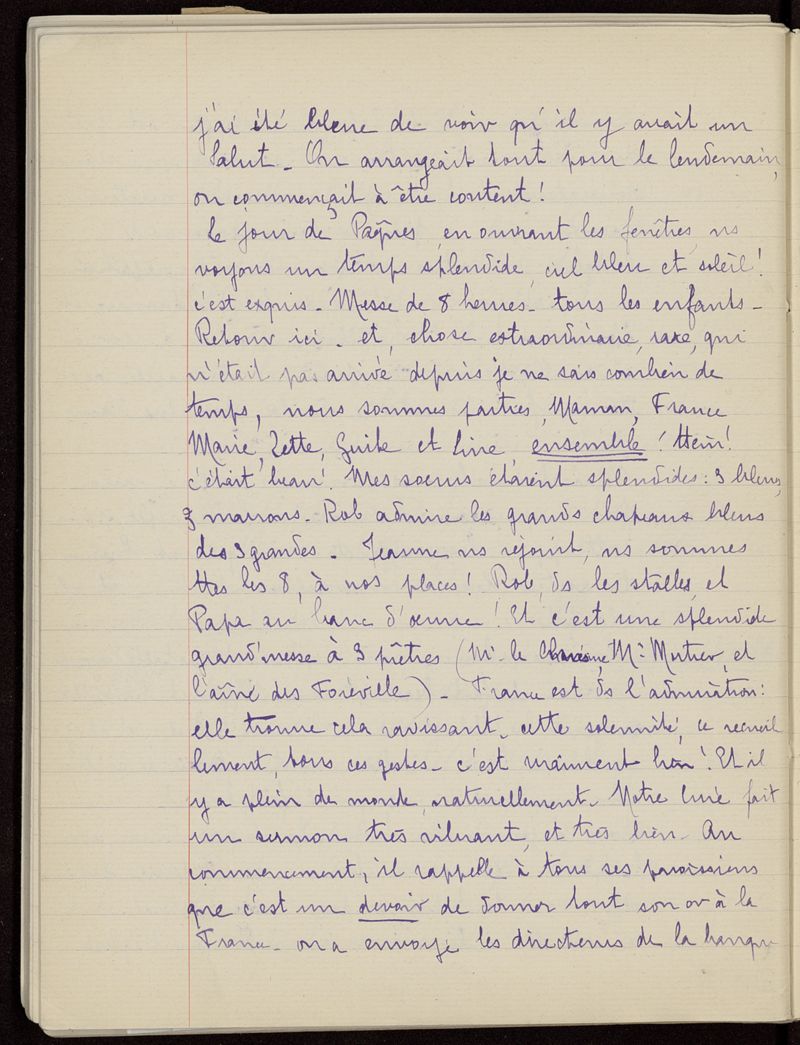 j'ai été bleue de voir qu'il y avait un
Salut - On arrangeait tout pour le lendemain,
on commençait à être content !
Le jour de Pâques, en ouvrant les fenêtres, ns
voyons un temps splendide, ciel bleu et soleil !
c'est exquis - Messe de 8 heures - tous les enfants -
Retour ici - et, chose extraordinaire, rare, qui
n'était pas arrivé depuis je ne sais combien de
temps, nous sommes parties, Maman, France
Marie, Zette, Guite et Line, ensemble ! Hein !
c'était beau ! Mes soeurs étaient splendides : 3 bleus,
3 marrons - Rob admire les grands chapeaux bleus
des 3 grandes - Jeanne ns rejoint, ns sommes
ttes les 8, à nos places ! Rob, ds les stalles, et
Papa au banc d'oeuvre ! Et c'est une splendide
grand'messe à 3 prêtres (Mr le Chanoine, Mr Mutier, et
l'aîné des Foreville) - France est ds l'admiration :
elle trouve cela ravissant, cette solennité, ce recueil
lement, tous ces gestes - c'est vraiment bien ! Et il
y a plein de monde, naturellement - Notre Curé fait
un sermon très vibrant, et très bien - Au
commencement, il rappelle à tous ses paroissiens
que c'est un devoir de donner tout son or à la
France - on a envoyé les directeurs de la banque